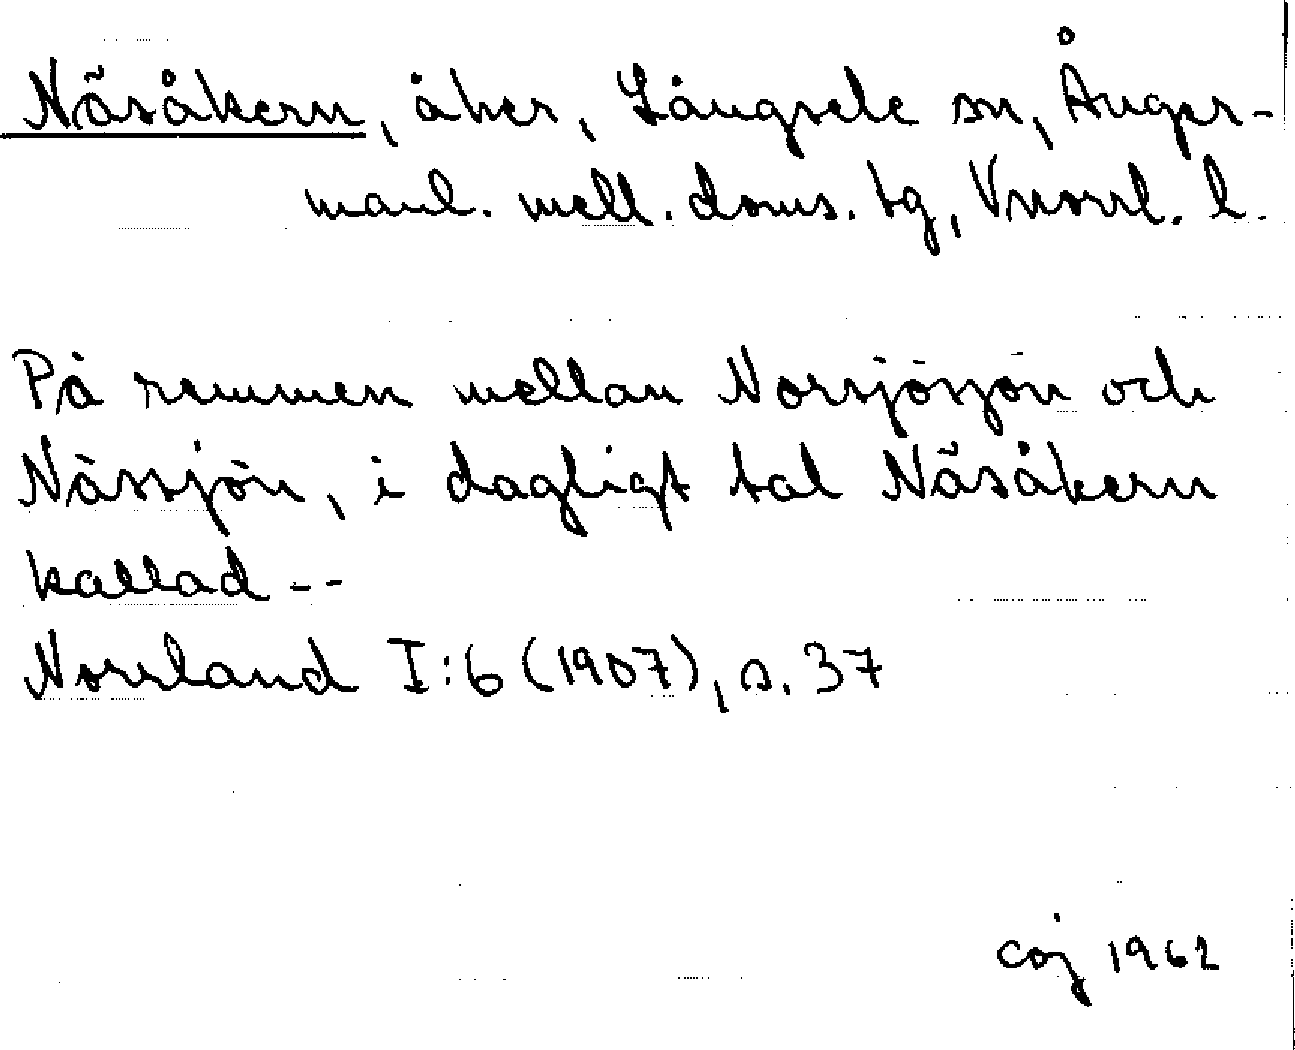 Näsåkern, åker, Långsele sn, Ånger-
manl. mell. doms. tg, Vnorrl. l.
På remmen mellan Norsjösjön och
Nässjön, i dagligt tal Näsåkern
kallad --
Norrland I:6 (1907), s. 37
coj 1962